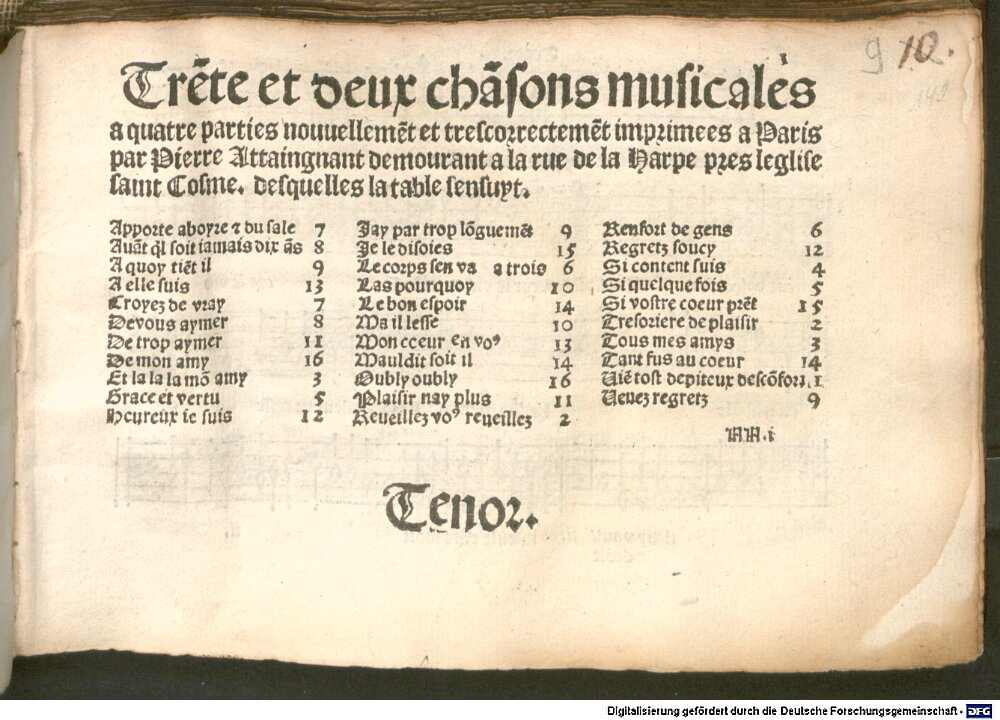 9 10.
149
Trẽte et deux chãsons musicales
a quatre parties nouuellemẽt et trescorrectemẽt imprimees a Paris
par Pierre Attaingnant demourant a la rue de la Harpe pres leglise
saint Cosme. desquelles la table sensuyt.
Apporte aboyre ⁊ du sale 7
Auãt ql soit iamais dix ãs 8
A quoy tiẽt il 9
A elle suis 13
Croyez de vray 7
Devous aymer 8
De trop aymer 11
De mon amy 16
Et la la la mõ amy 3
Grace et vertu 5
Heureux ie suis 12
Jay par trop lõguemẽt 9
Je le disoies 15
Le corps sen va a trois 6
Las pourquoy 10
Le bon espoir 14
Ma il lesse 10
Mon cœur en voꝰ 13
Mauldit soit il 14
Oubly oubly 16
Plaisir nay plus 11
Reveillez voꝰ reueillez 2
Renfort de gens 6
Regretz soucy 12
Si content suis 4
Si quelque fois 5
Si vostre coeur prẽt 15
Tresoriere de plaisir 2
Tous mes amys 3
Tant fus au coeur 14
Viẽ tost depiteux descõfort 1
Venez regretz 9
AA.i
Tenor.
Digitalisierung gefördert durch die Deutsche Forschungsgemeinschaft - DFG